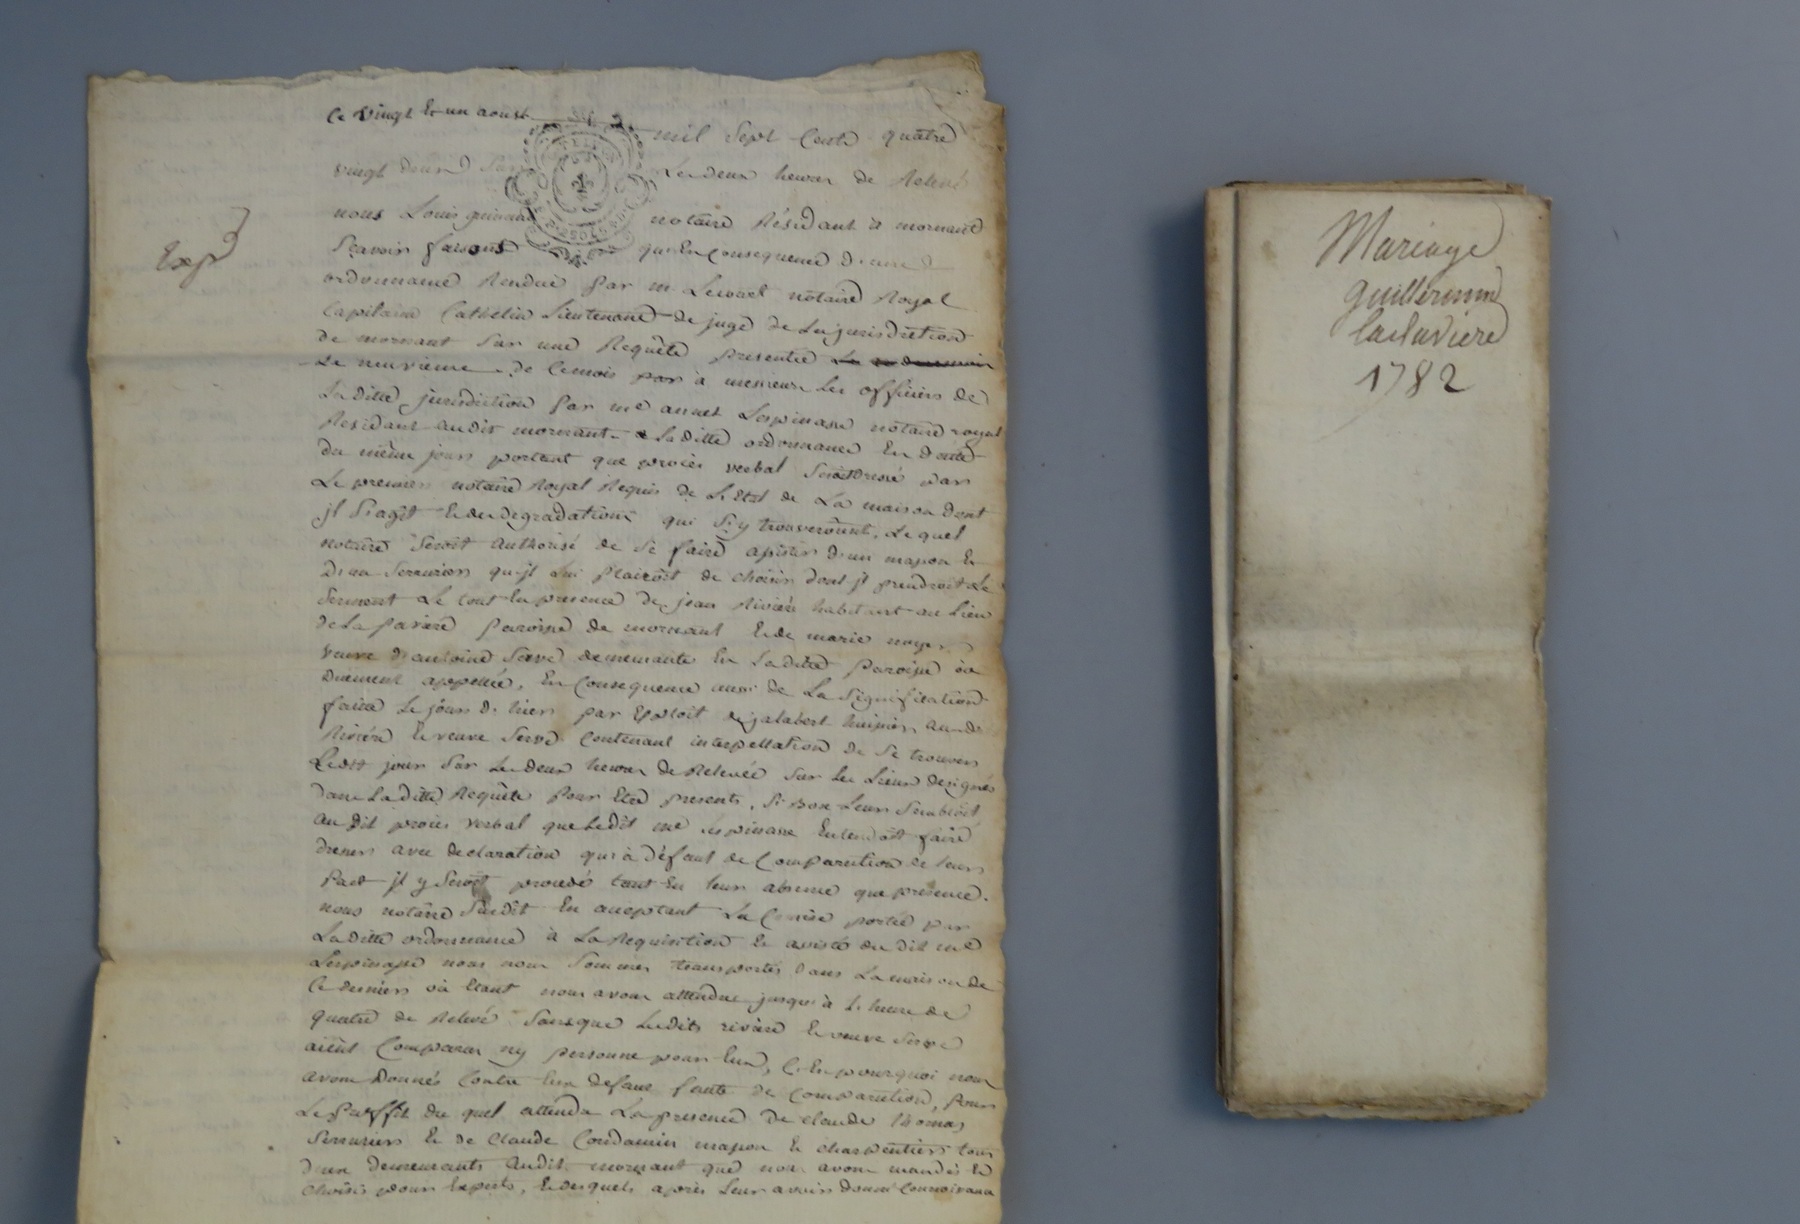 Ce vingt et un aoust mil Sept Cents quatre
vingt deux Sur Les deux heures de Relevé
nous Louis guinand notaire Résidant à mornant
Sçavoir faisons qu'en Consequence d'une
ordonnance Rendue par m notaire Royal
Capitaine Cathelin Lieutenant de juge de La jurisdiction
de mornant Sur une Requête presentée
Le neuvieme de Cemois par à messieurs les officiers de
Laditte jurisdiction par me annet Lespinasse notaire royal
Residant audit mornant & Laditte ordonnance En datte
du même jour portant que procès verbal Seroit dressé par
Le premier notaire Royal Requis de L'Etat de La maison dont
jl S'agit & des degradations qui S'y trouveroient, Le quel
notaire Seroit authorisé de Se faire assister d'un maçon &
D'un Serrurier qu'jl Lui plairoit de choisir dont jl prendroit Le
Serment Le tout En presence de jean Rivière habitant au Lieu
de La pavière paroisse de mornant & de marie
veuve d'antoine Serve demeurante En Laditte paroisse où
Duement appellés, En Consequence aussi de La Signification
faitte Le jour d'hier par Exploit de jalabert huissier aud.
Rivière & veuve Serve Contenant interpellation de Se trouver
Cedit jour Sur Les deux heures de Relevée Sur les Lieux designés
dans Laditte Requête pour Etre presents, Si Bon Leur Sembloit
au dit procès verbal que Ledit me Lespinasse Entendoit faire
dresser avec declaration qu'à défaut de Comparution de leur
part jl y Seroit procedé tant En leur absence que presence.
nous notaire Susdit En acceptant La portée par
Laditte ordonnance à La Requisition & du dit me
Lespinasse nous nous Sommes transportés Dans La maison de
Ce dernier où Etant nous avons attendus jusqu'à L'heure de
quatre de Relevé Sans que Lesdits rivière & veuve Serve
aient Comparus ny personne pour Eux, C'Est pourquoi nous
avons Donnés Contre Eux defaut faute de Comparution, pour
Le proffit du quel attendu La presence De claude thomas
Serrurier & de Claude Condamin maçon & charpentier tous
deux demeurants audit mornant que nous avons mandés &
choisis pour Experts, & desquels après leur avoir donné Connoissance
Exp
Mariage
Guillermin
laclaviere
1782